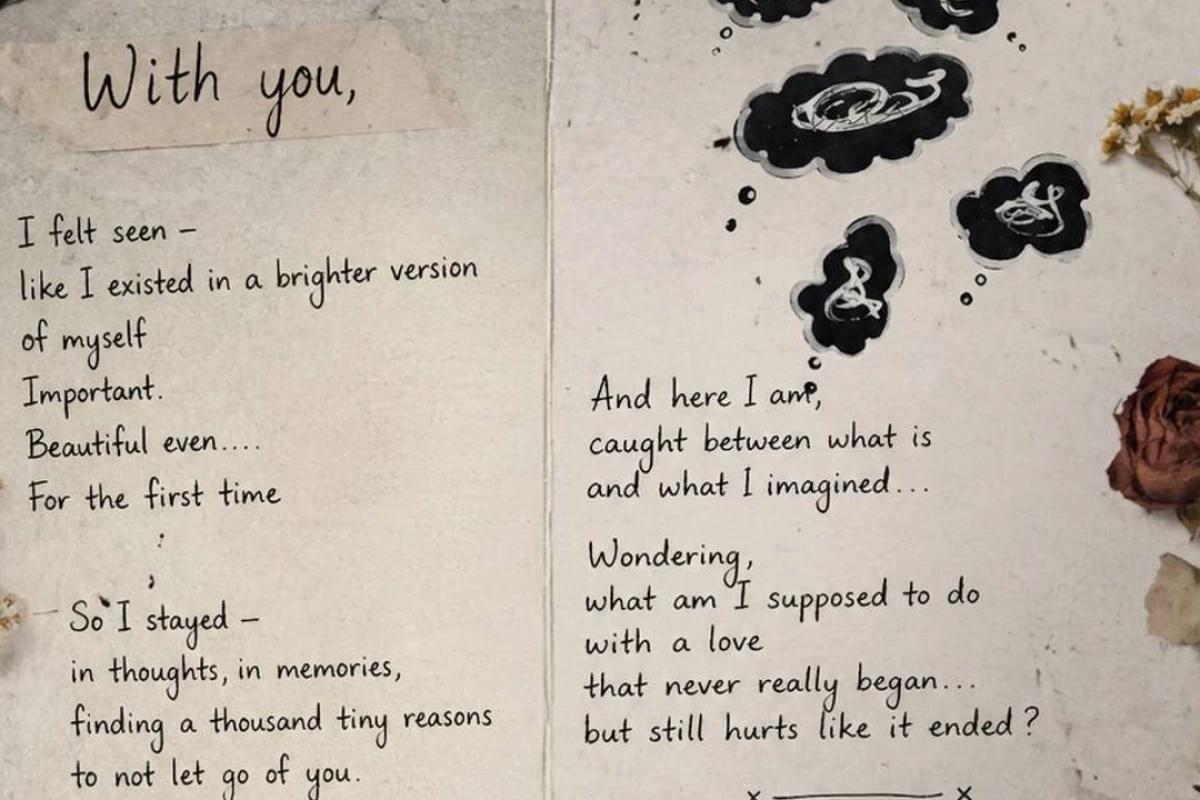 With you,
I felt seen –
like I existed in a brighter version
of myself
Important.
Beautiful even....
For the first time
So I stayed –
in thoughts, in memories,
finding a thousand tiny reasons
to not let go of you.
And here I am,
caught between what is
and what I imagined...
Wondering,
what am I supposed to do
with a love
that never really began...
but still hurts like it ended?